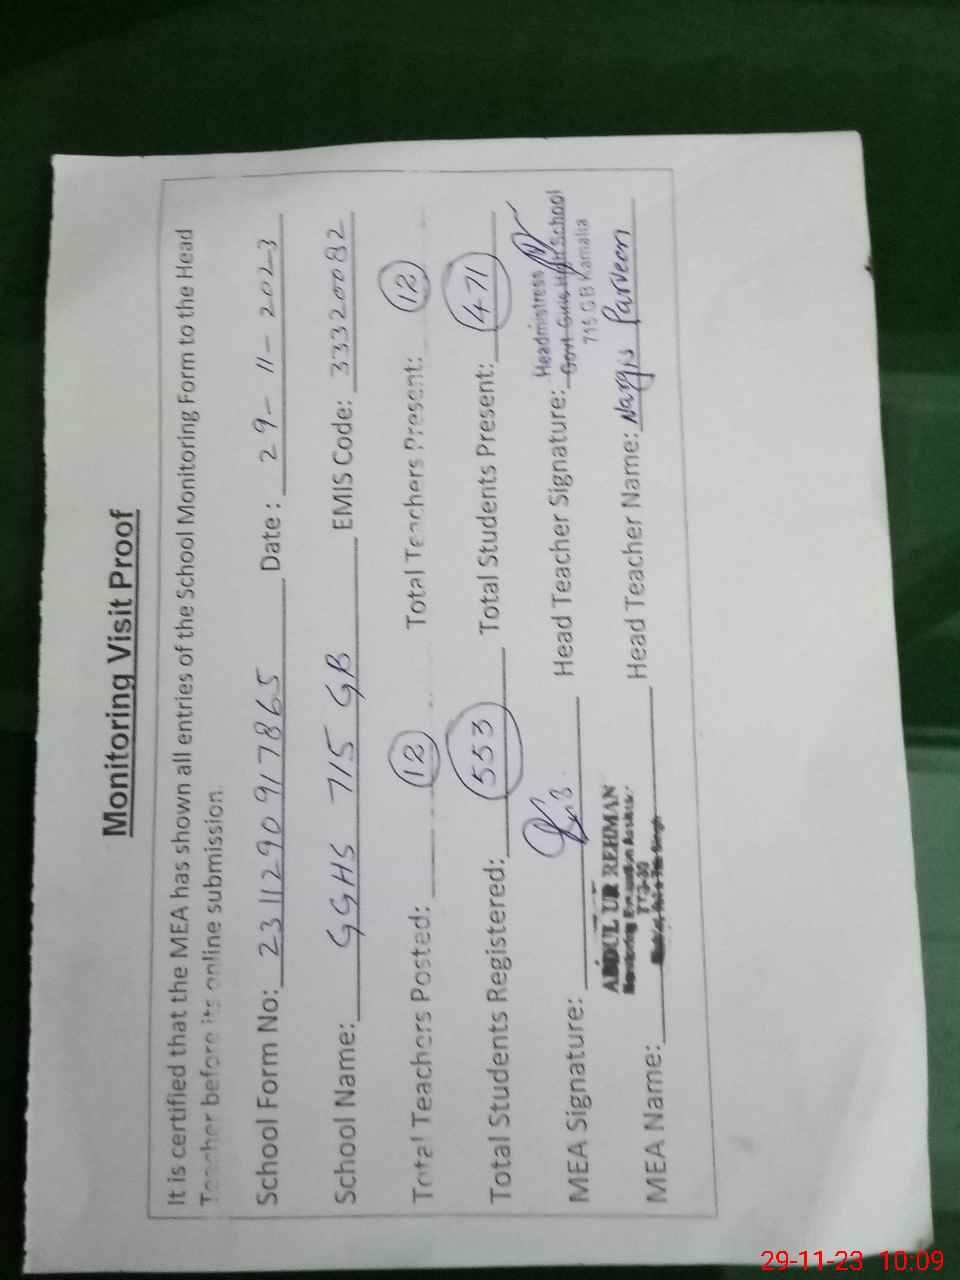 Monitoring Visit Proof
It is certified that the MEA has shown all entries of the School Monitoring Form to the Head
Teacher before its online submission.
School Form No: 231129091 7865 Date: 29-11-2023
School Name: GGHS 715 GB EMIS Code: 33320082
Total Teachers Posted: 12 Total Teachers Present: 12
Total Students Registered: 553 Total Students Present: 471
MEA Signature: Head Teacher Signature: Headmistress
Govt Girls High School
715 GB Kamalia
ABDUL UR REHMAN
Monitoring Evaluation Assistant
MEA Name: Head Teacher Name: Nargis Parveen
29-11-23 10:09